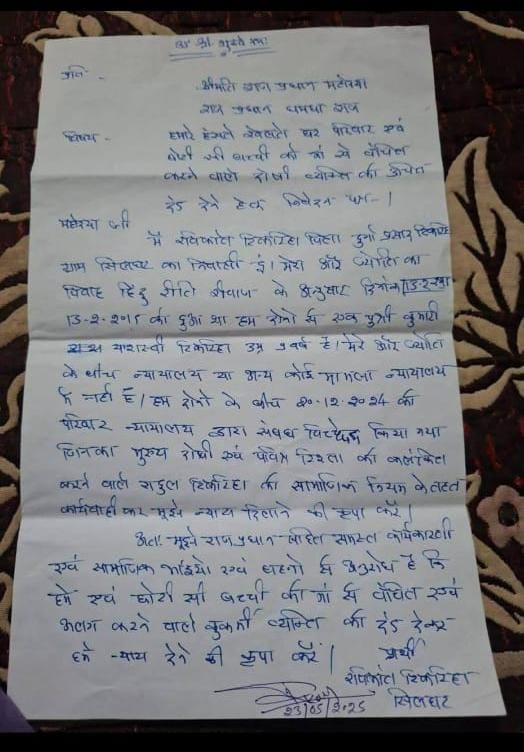 प्रति -
श्रीमति राज प्रधान महोदया
राज प्रधान धमधा राज
विषय - हमारे हंसते खेलते घर परिवार एवं
छोटी सी बच्ची को मां से वंचित
करने वाले दोषी व्यक्ति को उचित
दंड देने हेतु निवेदन पत्र - ।
महोदया जी
मैं रविकांत टिकरिहा पिता दुर्गा प्रसाद टिकरिहा
ग्राम सिलघट का निवासी हूं। मेरा और ज्योति का
विवाह हिंदु रीति रीवाज के अनुसार दिनांक
13-2-2015 को हुआ था हम दोनो से एक पुत्री कुमारी
यशस्वी टिकरिहा उम्र वर्ष है। मेरे और ज्योति
के बीच न्यायालय या अन्य कोई मामला न्यायालय
में नही है। हम दोनो के बीच 20.12.2024 को
परिवार न्यायालय द्वारा संबंध विच्छेद किया गया
जिनका मुख्य दोषी एवं पवित्र रिश्ता को कलंकित
करने वाले राहुल टिकरिहा को सामाजिक नियम के तहत
कार्यवाही कर मुझे न्याय दिलाने की कृपा करें।
अतः मुझे राजप्रधान सहित समस्त कार्यकारणी
एवं सामाजिक भाईयो एवं बहनो से अनुरोध है कि
हमे एवं छोटी सी बच्ची को मां से वंचित एवं
अलग करने वाले कुकर्मी व्यक्ति को दंड देकर
हमे न्याय देने की कृपा करें।
प्रार्थी
रविकांत टिकरिहा
सिलघट
23/05/2025